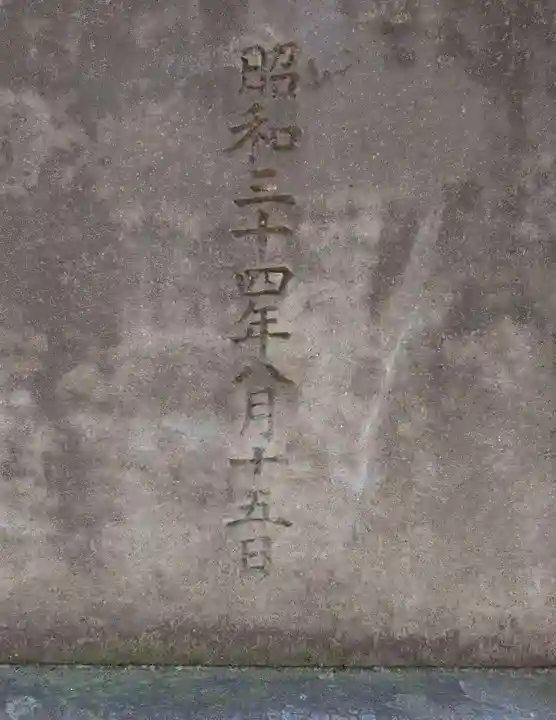 昭和三十四年八月十五日